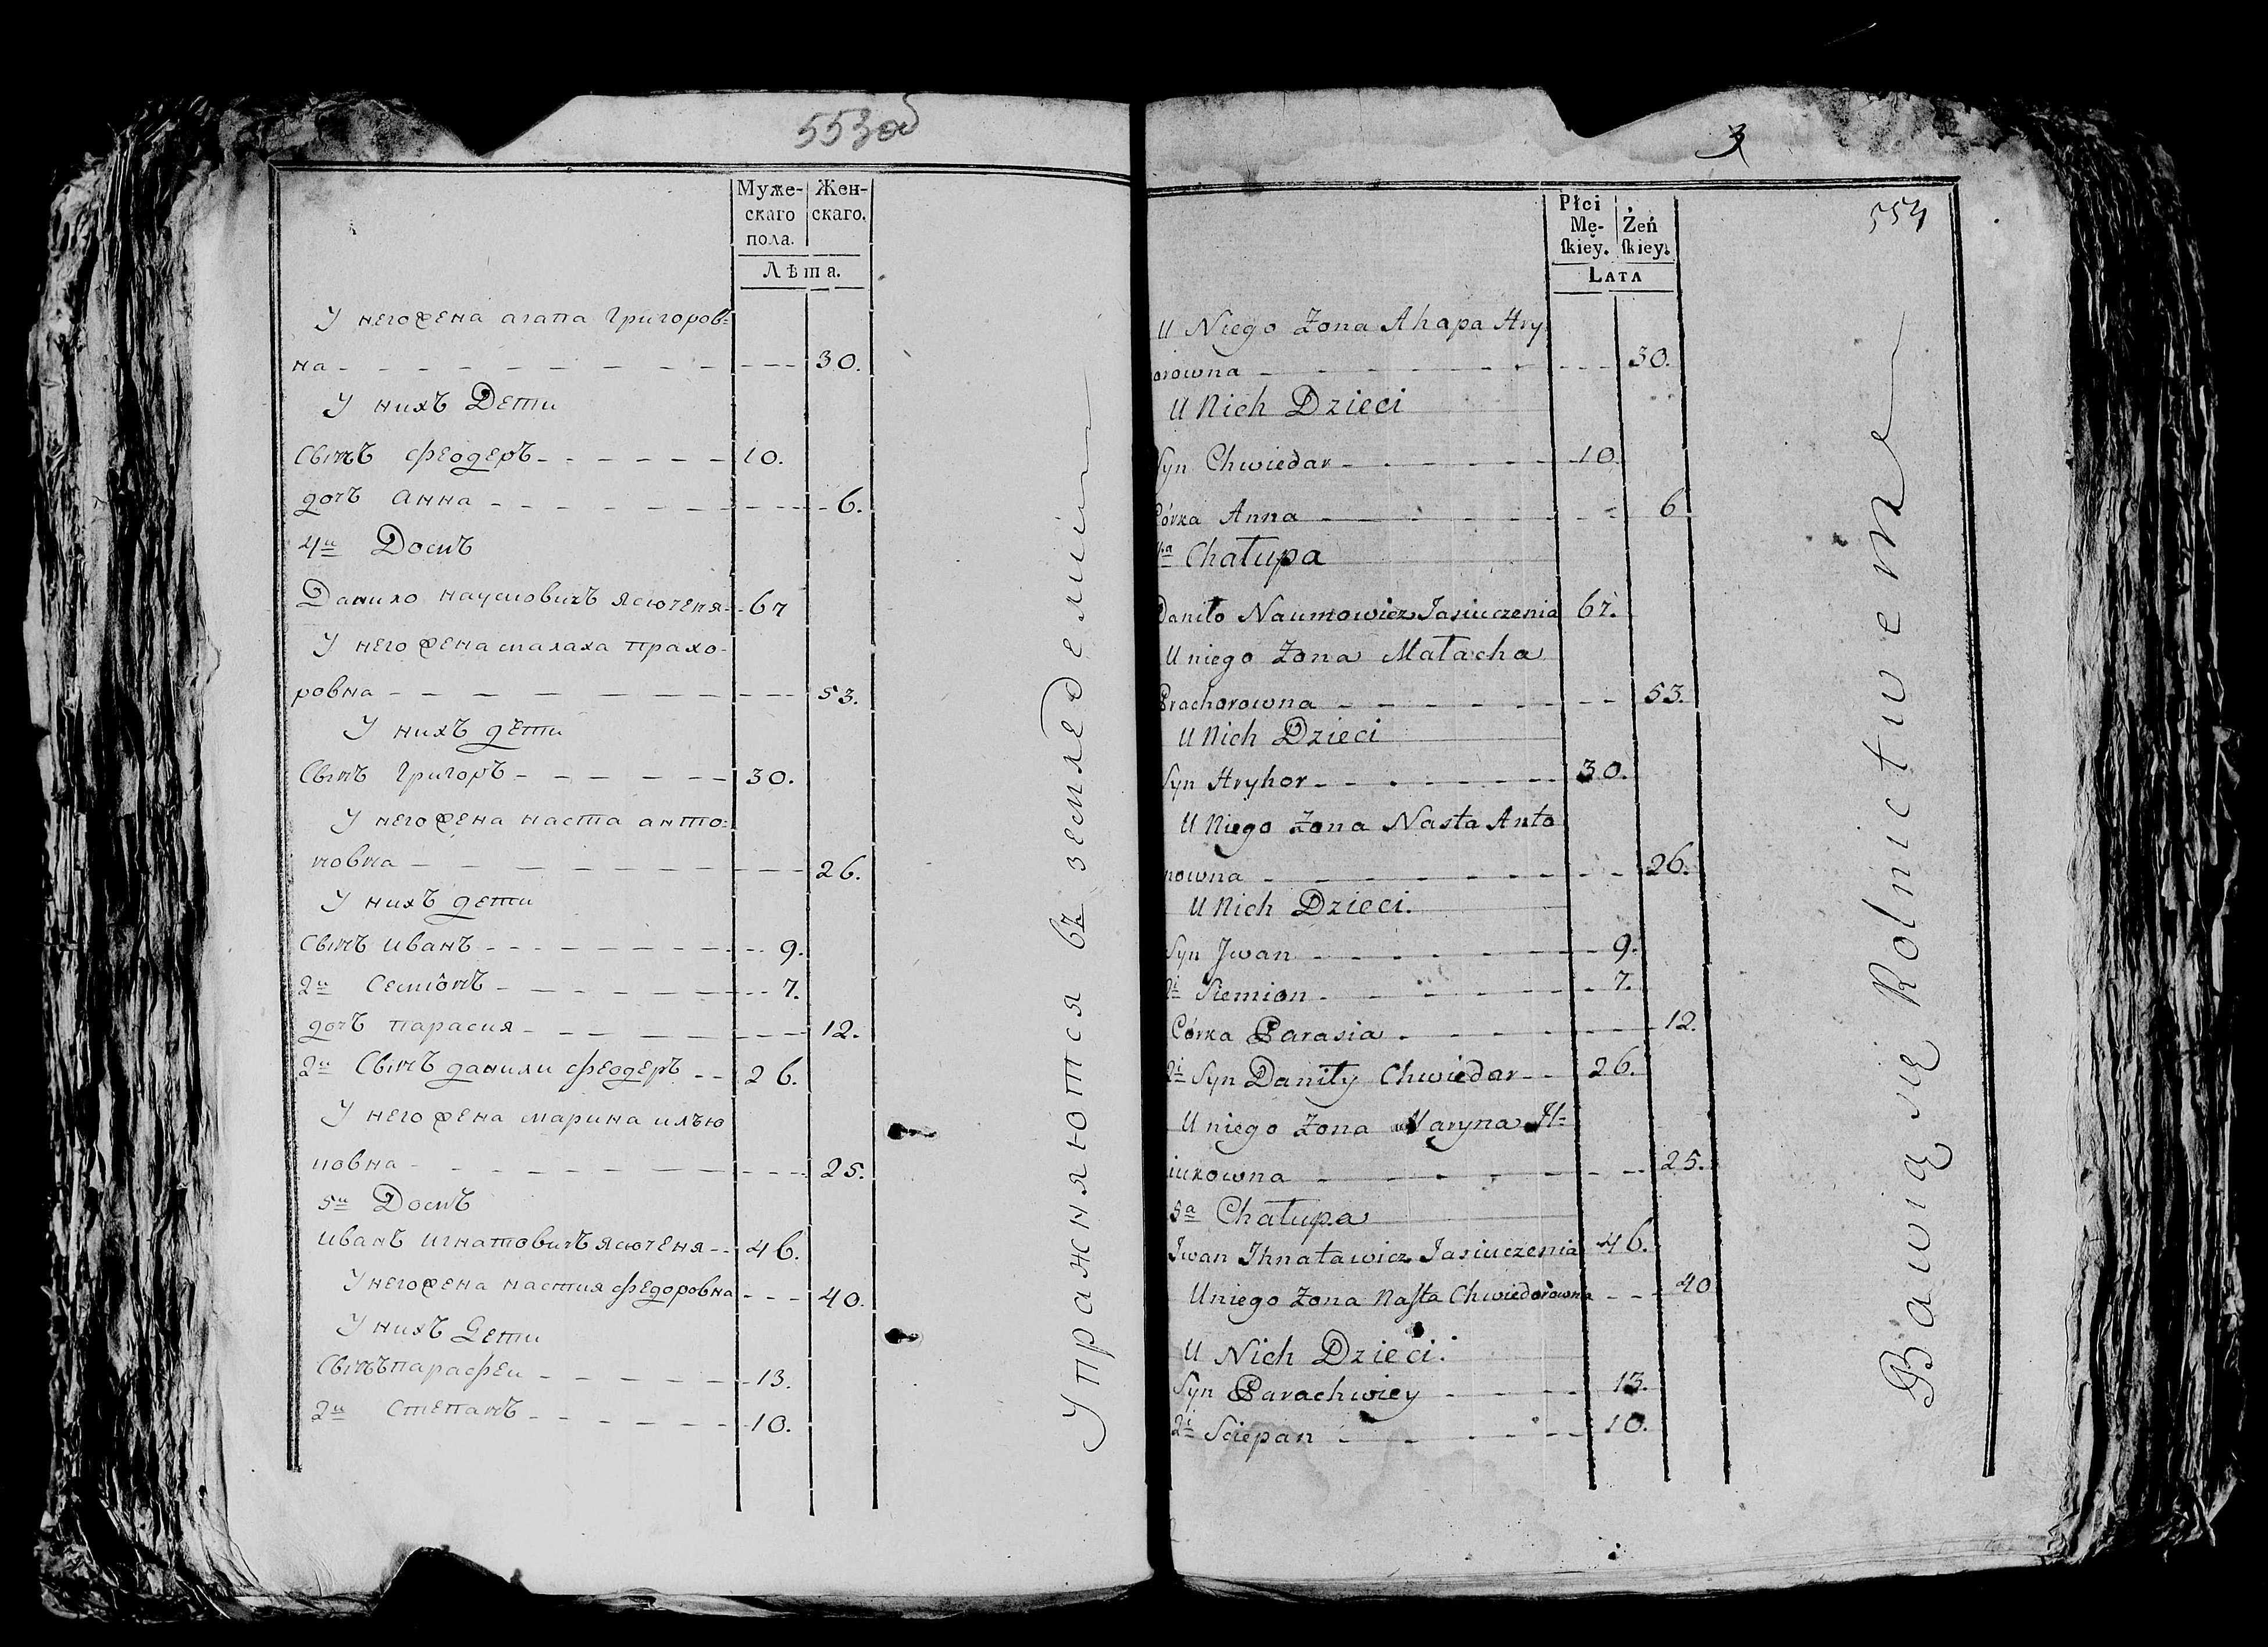 553об
Муже-
скаго
пола.
Жен-
скаго.
Лѣта.
У него жена агапа Григоров=
на - - - - - - - - - 30.
У нихъ Дети
Сынъ Феодеръ - - - - - 10.
дочъ Анна - - - - - - 6.
4й Домъ
Данило наумовичъ Ясюченя - 67
У него жена малаха прахо-
ровна - - - - - - - - 53.
У нихъ дѣти
Сынъ Григоръ - - - - - 30.
У него жена наста анто=
новна - - - - - - - - 26.
У нихъ дети
Сынъ иванъ - - - - - - 9.
2й Семіонъ - - - - - - 7.
дочъ парасия - - - - - 12.
2й Сынъ данили Феодеръ - - 26.
У него жена марина илъю
ковна - - - - - - - - 25.
5й Домъ
иванъ игнатовичъ ясюченя - - 46.
У него жена настия Федоровна - - - 40.
У нихъ Дети
Сынъ парафеи - - - - - 13.
2й Степанъ - - - - - - 10.
Упражняются въ земледелии
3
554
Płci
Mę-
skiey.
Żeń
skiey.
LATA
U Niego Żona Ahapa Hry
orowna - - - - - - - 30.
U Nich Dzieci
Syn Chwiedar - - - - - 10
Córka Anna - - - - - - 6
4a Chałupa
Daniło Naumowicz Jasiuczenia 67.
U niego Żona Małacha
Prachorowna - - - - - - 53.
U Nich Dzieci
Syn Hryhor - - - - - - 30.
U Niego Żona Nasta Anto
nowna - - - - - - - - 26.
U Nich Dzieci.
Syn Jwan - - - - - - - 9.
2i Siemion - - - - - - 7.
Córka Parasia - - - - - 12.
2i Syn Daniły Chwiedar - - 26.
U niego Żona Maryna Jl=
iukowna - - - - - - - 25.
5a Chałupa
Jwan Jhnatawicz Jasiuczenia 46.
U niego Żona Nasta Chwiedorowna - - 40
U Nich Dzieci.
Syn Parachwiey - - - - 13.
2i Sciepan - - - - - - 10.
Bawią się Rolnictwem